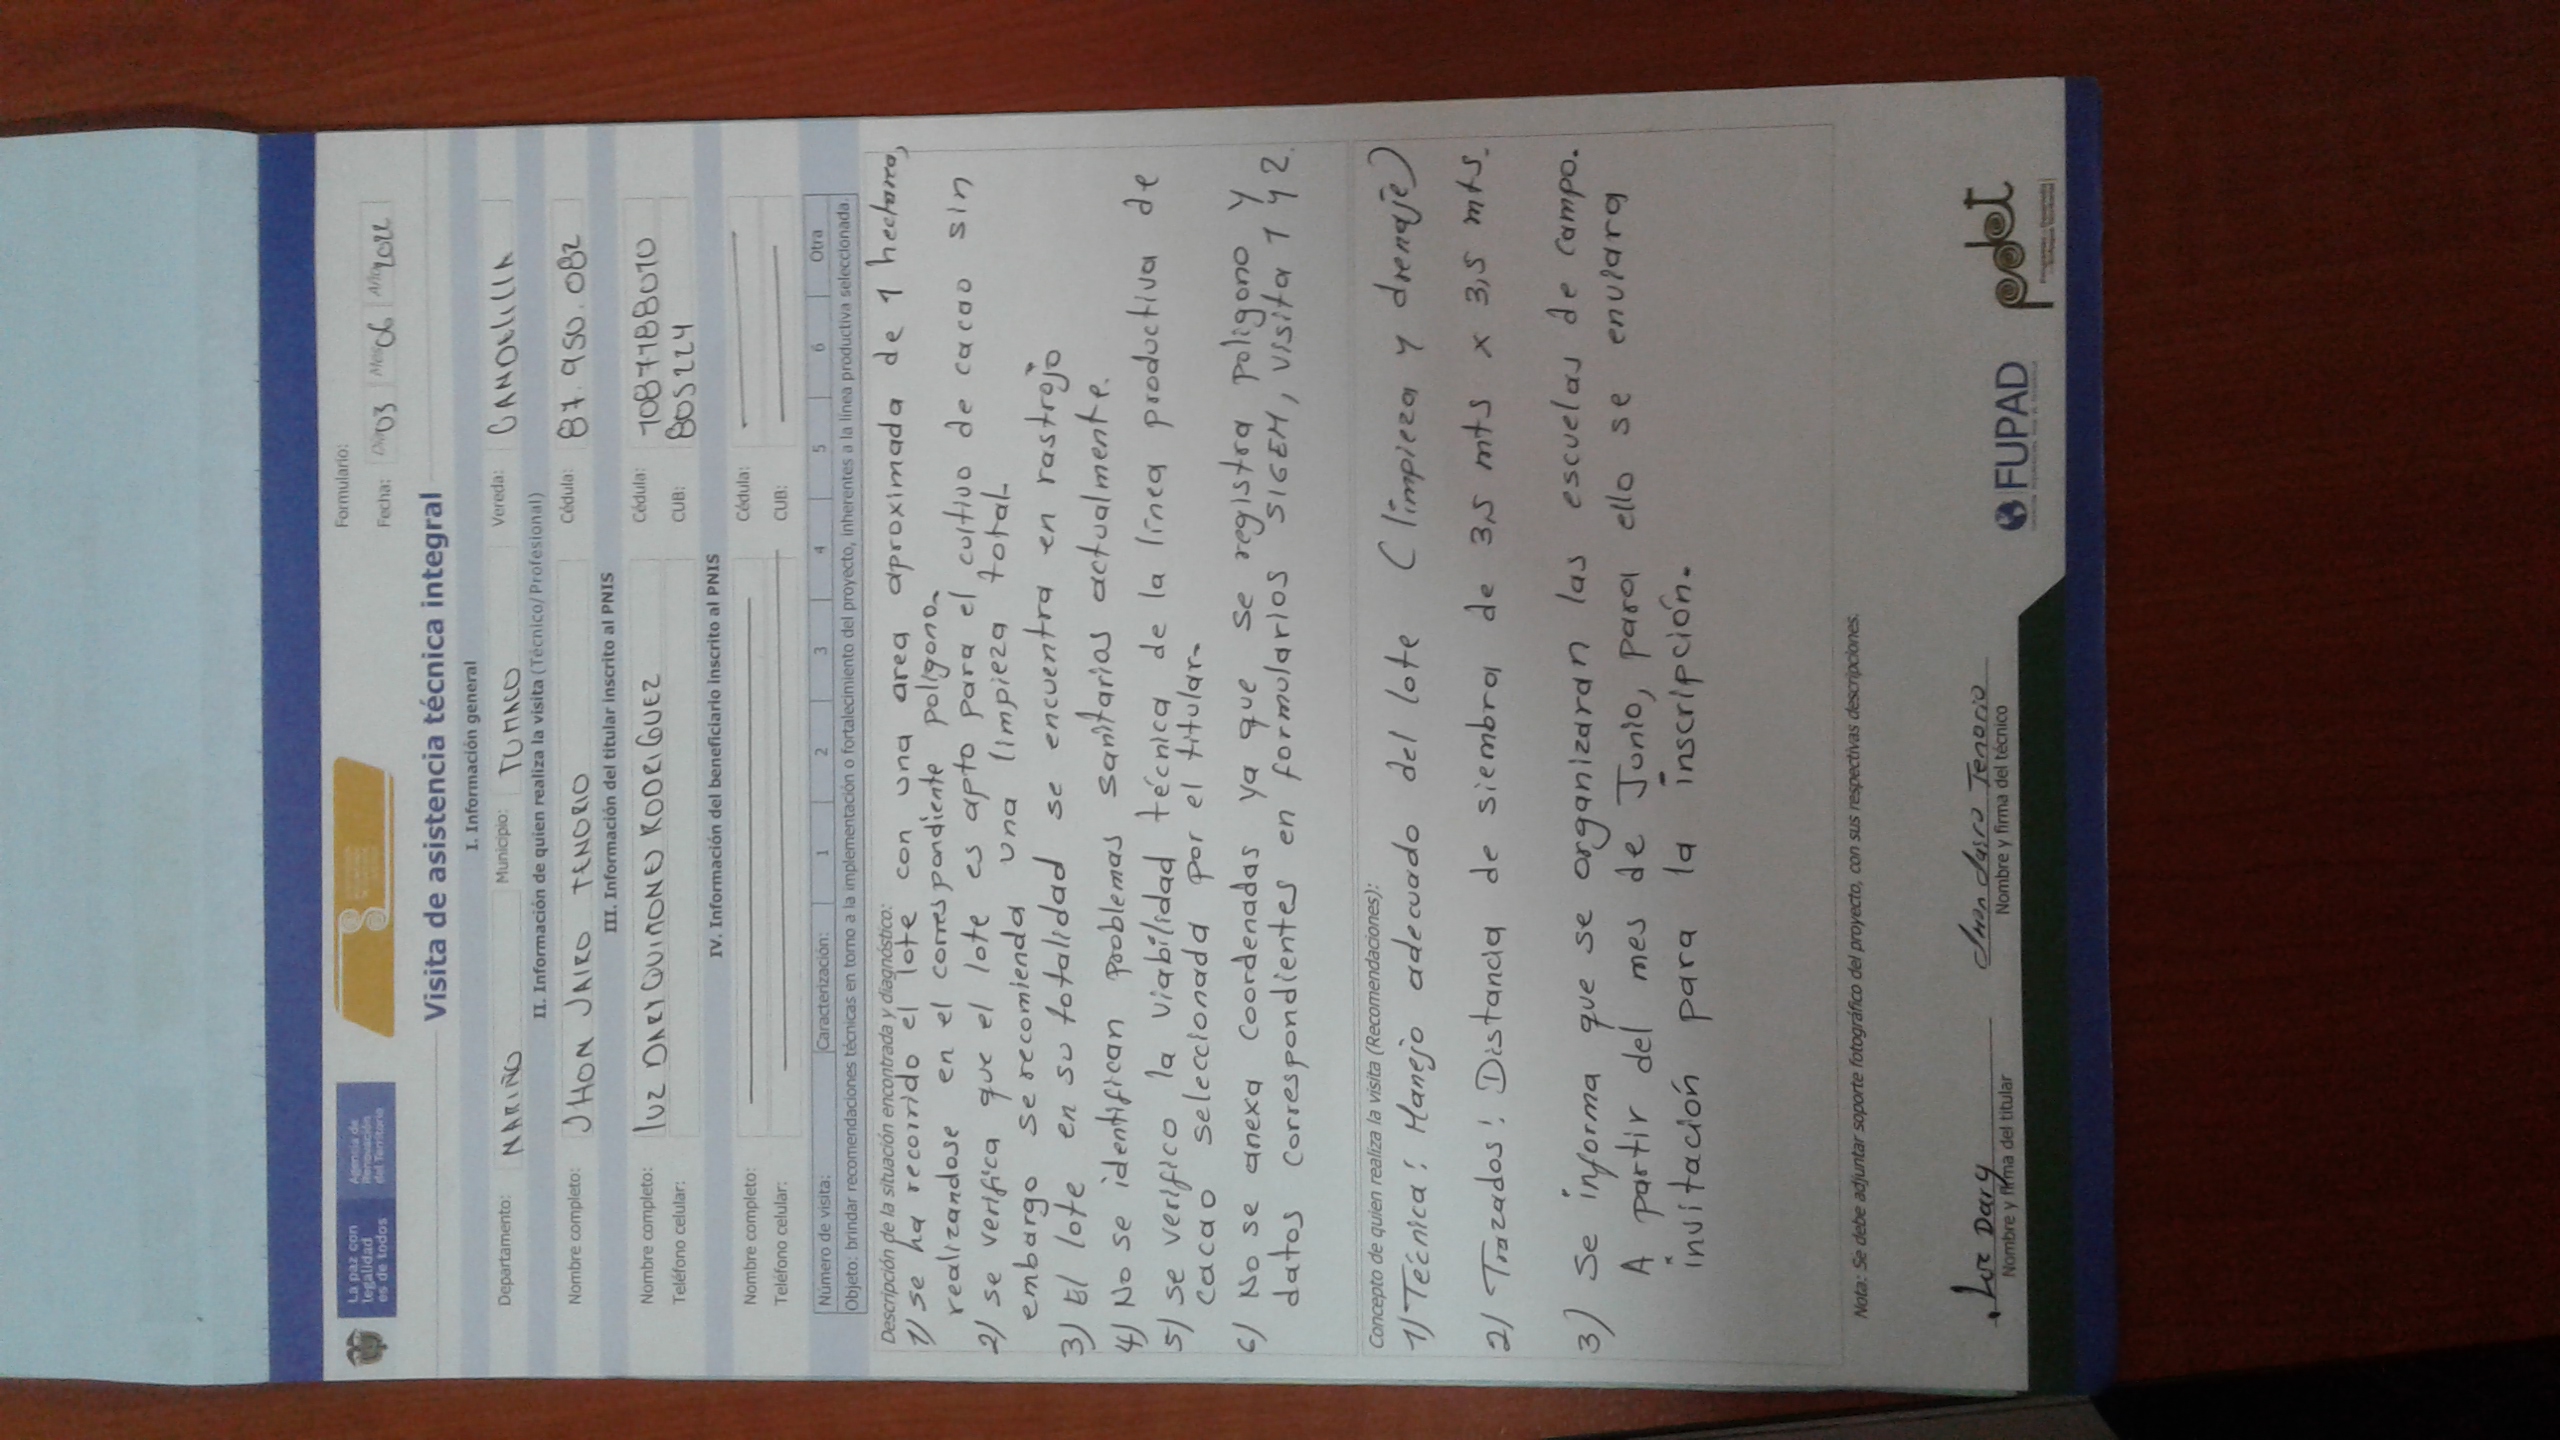 La paz con
legalidad
es de todos
Agencia de
Renovación
del Territorio
Formulario:
Fecha: Día 03 Mes 06 Año 2022
Visita de asistencia técnica integral
I. Información general
Departamento: NARIÑO Municipio: TUMACO Vereda: CANDELILLA
II. Información de quien realiza la visita (Técnico/Profesional)
Nombre completo: JHON JAIRO TENORIO Cédula: 87.950.082
III. Información del titular inscrito al PNIS
Nombre completo: LUZ DARY QUIÑONES RODRIGUEZ Cédula: 1087188010
Teléfono celular: CUB: 805224
IV. Información del beneficiario inscrito al PNIS
Nombre completo: Cédula:
Teléfono celular: CUB:
Número de visita: Caracterización: 1 2 3 4 5 6 Otra
Objeto: brindar recomendaciones técnicas en torno a la implementación o fortalecimiento del proyecto, inherentes a la línea productiva seleccionada.
Descripción de la situación encontrada y diagnóstico:
1) se ha recorrido el lote con una area aproximada de 1 hectarea,
realizandose en el correspondiente poligono.
2) se verifica que el lote es apto para el cultivo de cacao sin
embargo se recomienda una limpieza total.
3) El lote en su totalidad se encuentra en rastrojo
4) No se identifican problemas sanitarios actualmente.
5) se verifico la viabilidad técnica de la línea productiva de
cacao seleccionada por el titular.
6) No se anexa coordenadas ya que se registra poligono y
datos correspondientes en formularios SIGEM, visita 1 y 2.
Concepto de quien realiza la visita (Recomendaciones):
1) Técnica: Manejo adecuado del lote (limpieza y drenaje)
2) Trazados: Distancia de siembra de 3,5 mts x 3,5 mts.
3) Se informa que se organizaran las escuelas de campo.
A partir del mes de Junio, para ello se enviara
invitación para la inscripción.
Nota: Se debe adjuntar soporte fotográfico del proyecto, con sus respectivas descripciones.
Luz Dary
Nombre y firma del titular
Jhon Jairo Tenorio
Nombre y firma del técnico
FUPAD
pdet